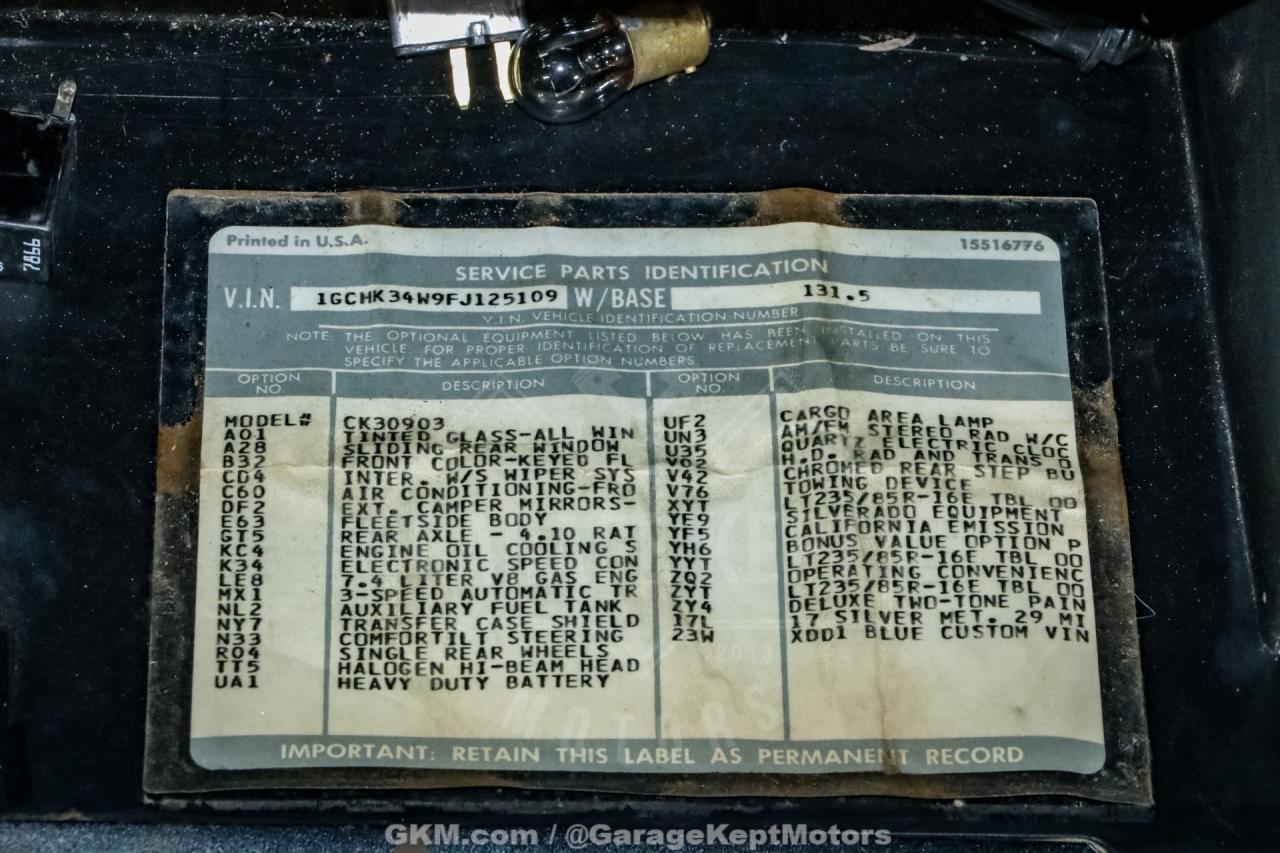 7866
Printed in U.S.A.
15516776
SERVICE PARTS IDENTIFICATION
V.I.N. 1GCHK34W9FJ125109 W/BASE 131.5
V.I.N. VEHICLE IDENTIFICATION NUMBER
NOTE: THE OPTIONAL EQUIPMENT LISTED BELOW HAS BEEN INSTALLED ON THIS
VEHICLE. FOR PROPER IDENTIFICATION OF REPLACEMENT PARTS BE SURE TO
SPECIFY THE APPLICABLE OPTION NUMBERS.
OPTION NO. DESCRIPTION OPTION NO. DESCRIPTION
MODEL# CK30903
A01 TINTED GLASS-ALL WIN
A28 SLIDING REAR WINDOW
B32 FRONT COLOR-KEYED FL
CD4 INTER. W/S WIPER SYS
C60 AIR CONDITIONING-FRO
DF2 EXT. CAMPER MIRRORS-
E63 FLEETSIDE BODY
GT5 REAR AXLE - 4.10 RAT
KC4 ENGINE OIL COOLING S
K34 ELECTRONIC SPEED CON
LE8 7.4 LITER V8 GAS ENG
MX1 3-SPEED AUTOMATIC TR
NL2 AUXILIARY FUEL TANK
NY7 TRANSFER CASE SHIELD
N33 COMFORTILT STEERING
R04 SINGLE REAR WHEELS
TT5 HALOGEN HI-BEAM HEAD
UA1 HEAVY DUTY BATTERY
UF2 CARGO AREA LAMP
UN3 AM/FM STEREO RAD W/C
U35 QUARTZ ELECTRI CLOC
V02 H.D. RAD AND TRANS O
V42 CHROMED REAR STEP BU
V76 TOWING DEVICE
XYT LT235/85R-16E TBL OO
YE9 SILVERADO EQUIPMENT
YF5 CALIFORNIA EMISSION
YH6 BONUS VALUE OPTION P
YYT LT235/85R-16E TBL OO
ZQ2 OPERATING CONVENIENC
ZYT LT235/85R-16E TBL OO
ZY4 DELUXE TWO-TONE PAIN
17L 17 SILVER MET. 29 MI
23W XDD1 BLUE CUSTOM VIN
2013
MOTORS
IMPORTANT: RETAIN THIS LABEL AS PERMANENT RECORD
GKM.com / @GarageKeptMotors